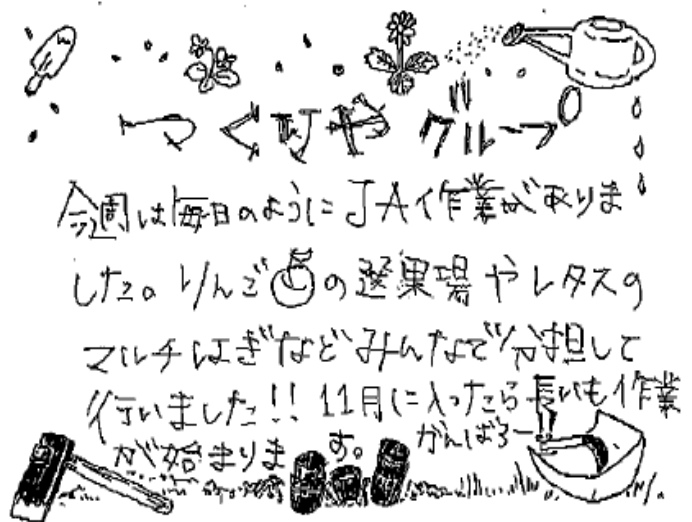 つくりや グループ
今週は毎日のようにJA作業がありま
した。りんごの選果場やレタスの
マルチはぎなどみんなで分担して
行いました!! 11月に入ったら長いも作業
が始まります。がんばろー